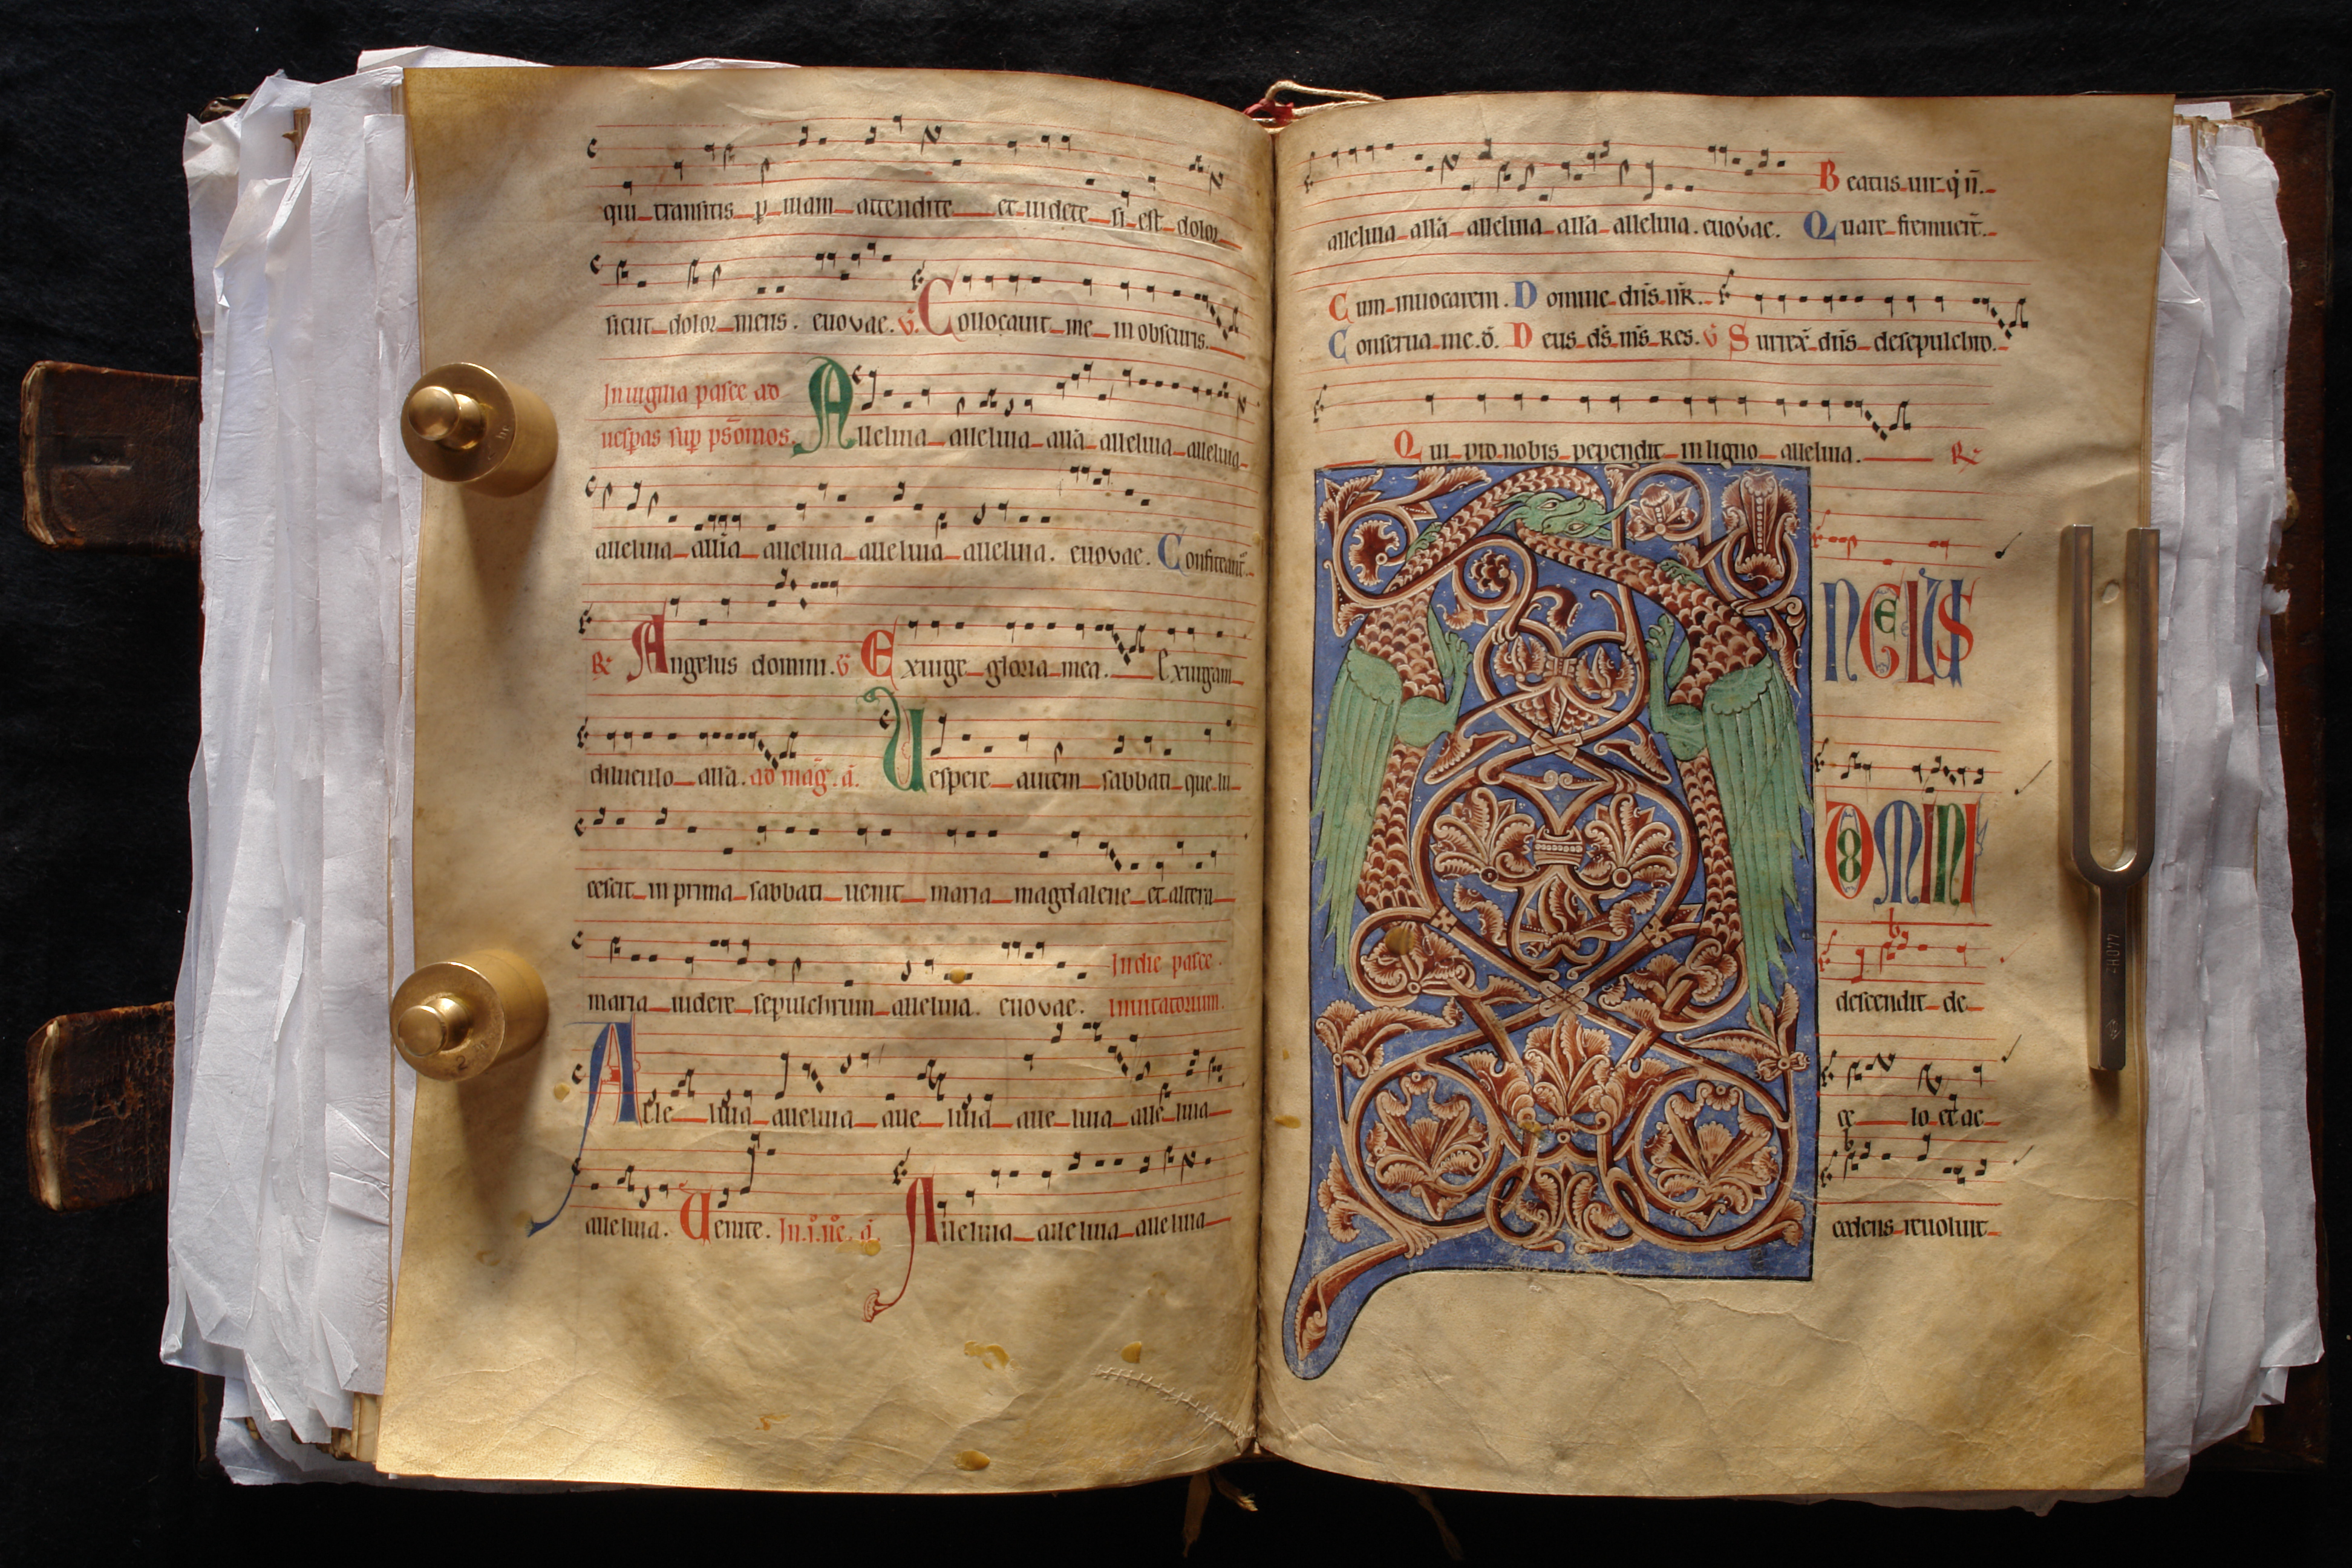 qui transitis p uiam attendite et uidete si est dolor
sicut dolor meus. euovae. V Collocauit me in obscuris.
In uigilia pasce ad
uesp̱as sup ps̄mos. Alleluia alleluia all̄a alleluia alleluia
alleluia all̄ia alleluia alleluia alleluia. euovae. Confitean̄t.
R Angelus domini. V Exurge gloria mea. Exurgam
diluculo all̄a. ad mag̅. a̅. Uespere autem sabbati que lu
cescit in prima sabbati uenit maria magdalene et altera
maria uidere sepulchrum alleluia. euovae. In die pasce.
Inuitatorium.
Alle luia alleluia alle luia alle luia alle luia
alleluia. Uenite. In .i. n̄c. a̅. Alleluia alleluia alleluia
Beatus uir q̇ n̄.
alleluia all̄a alleluia all̄a alleluia. euovae. Quare fremuer̄t.
Cum inuocarem. Domine dn̄s n̄r.
Conserua me. d̄. Deus d̄s m̄s res. V Surrex̄ dn̄s de sepulchro.
Qui pro nobis pependit in ligno alleluia. R
NGELUS
DOMINI
descendit de
ce lo et ac
cedens reuoluit
440Hz
2